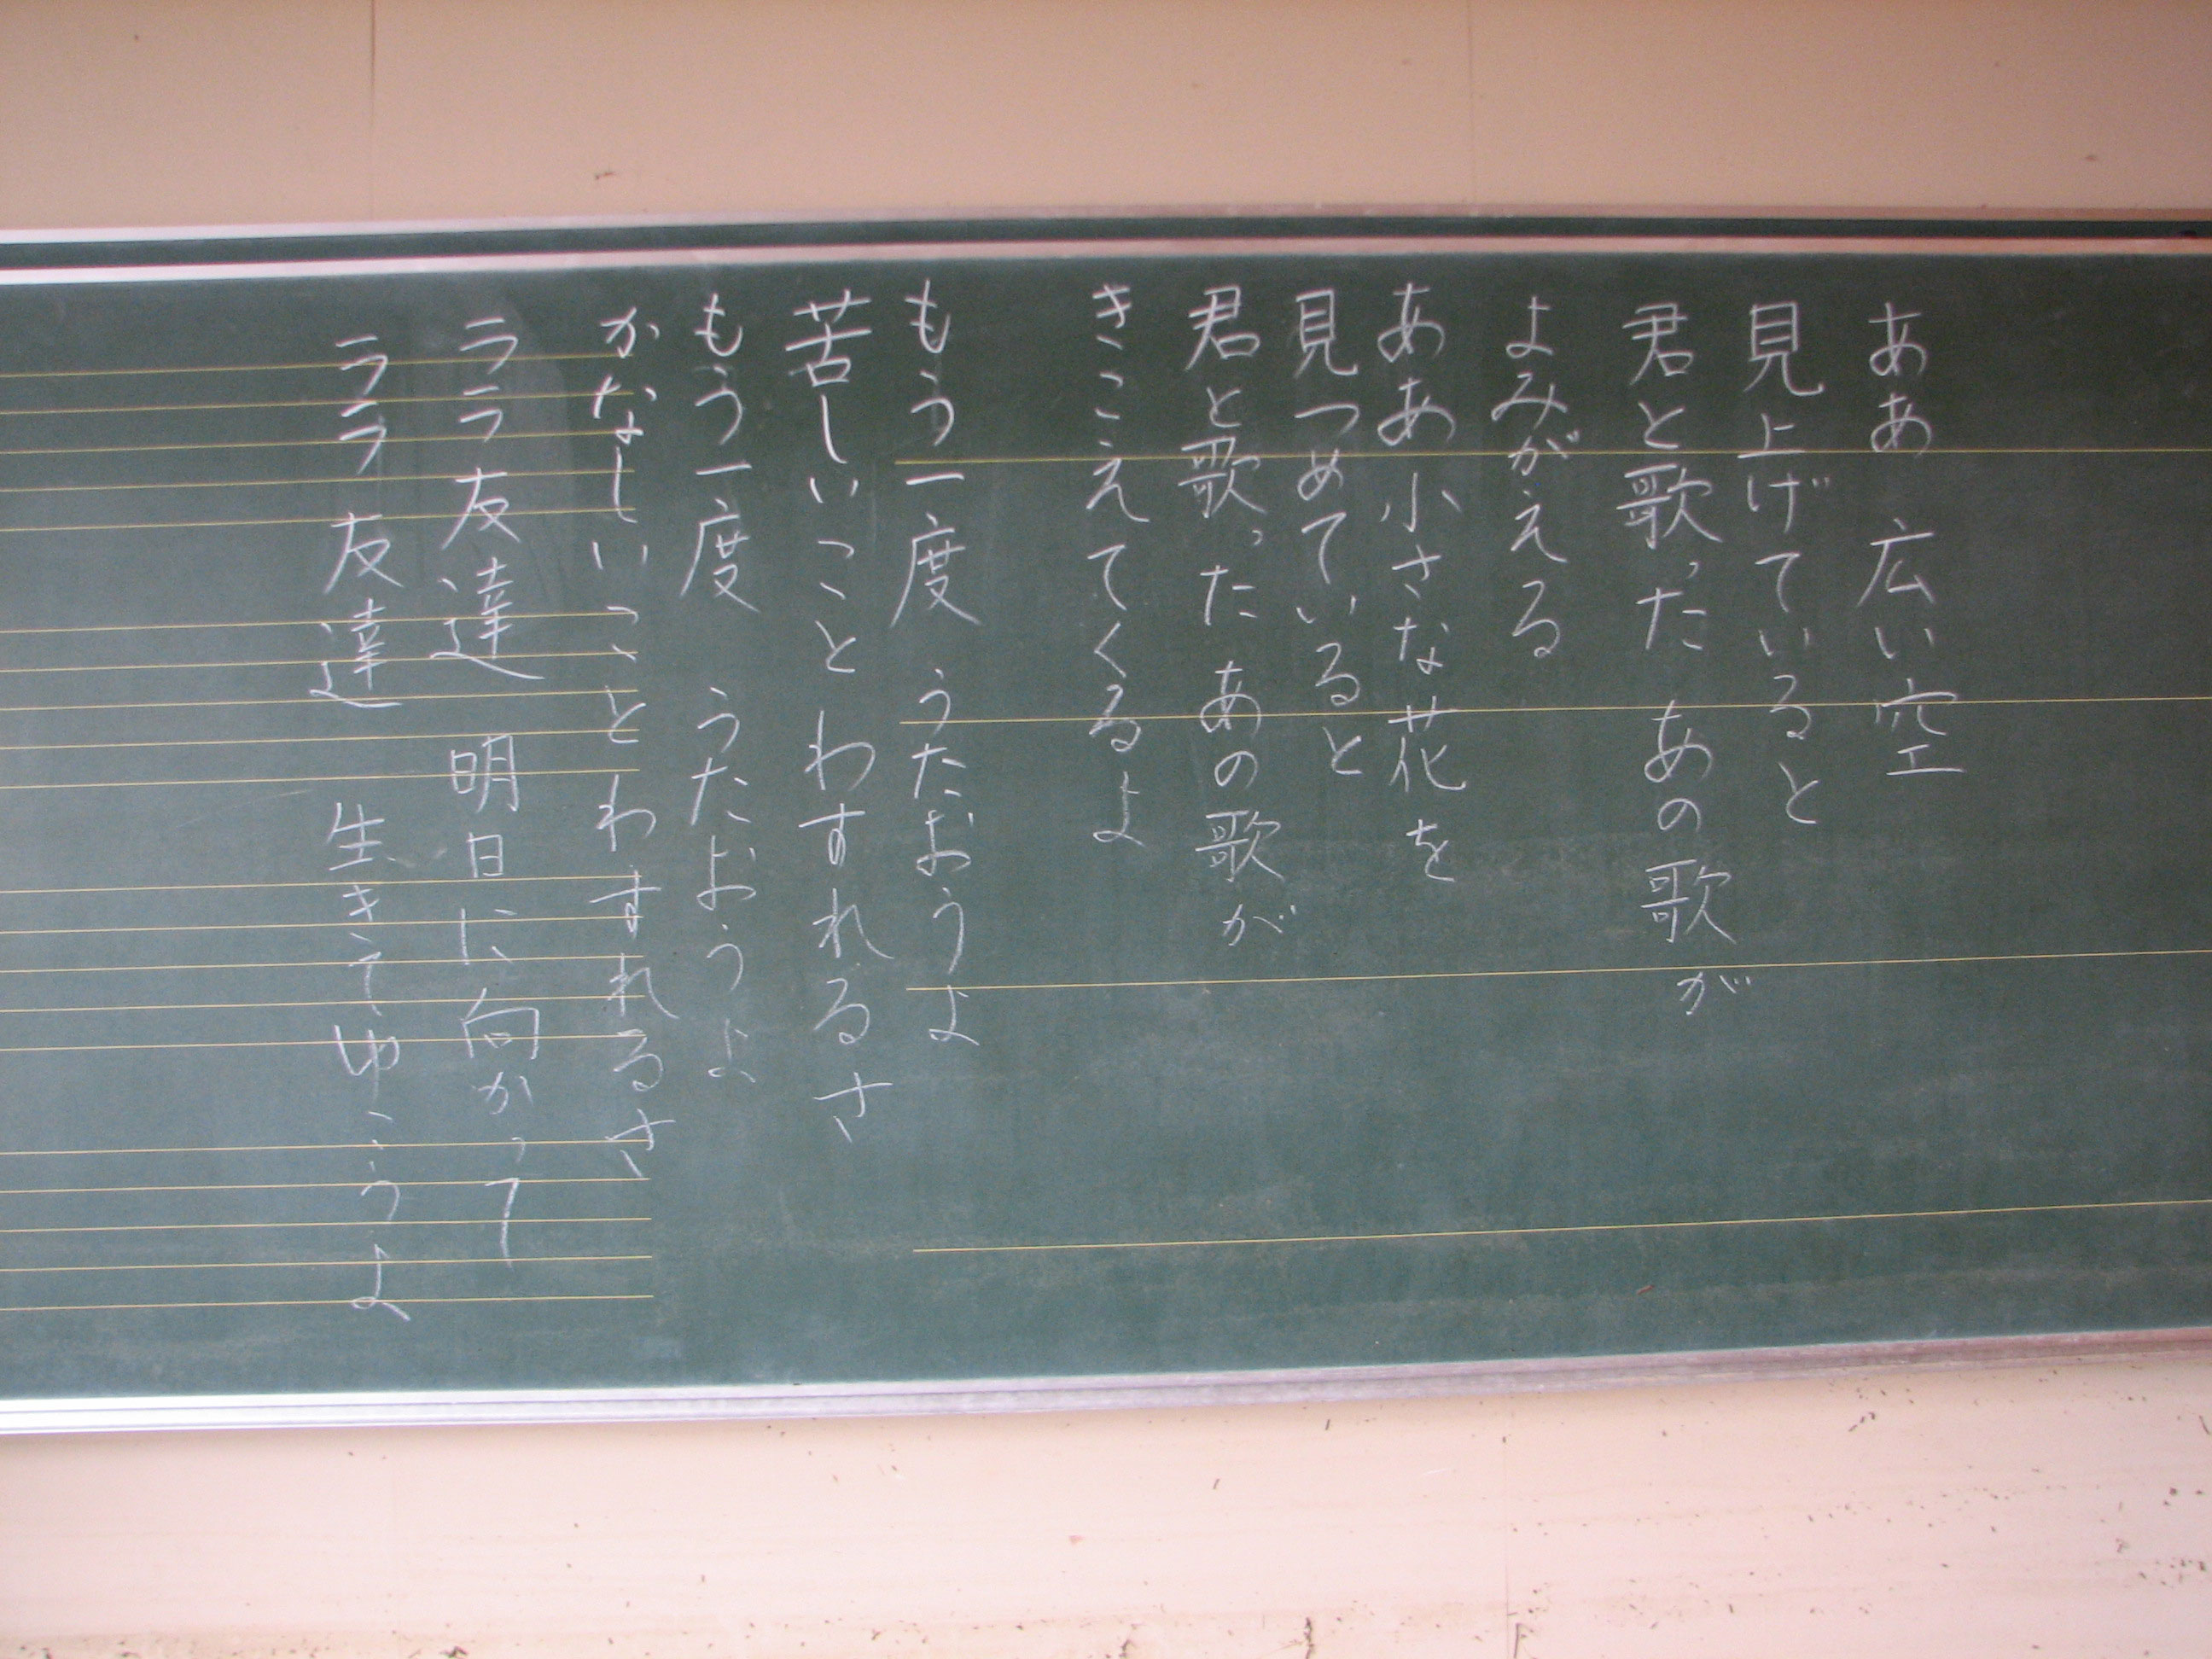 ああ 広い空
見上げていると
君と歌った あの歌が
よみがえる
ああ小さな花を
見つめていると
君と歌った あの歌が
きこえてくるよ
もう一度 うたおうよ
苦しいこと わすれるさ
もう一度 うたおうよ
かなしいこと わすれるさ
ララ友達 明日に向かって
ララ 友達 生きてゆこうよ